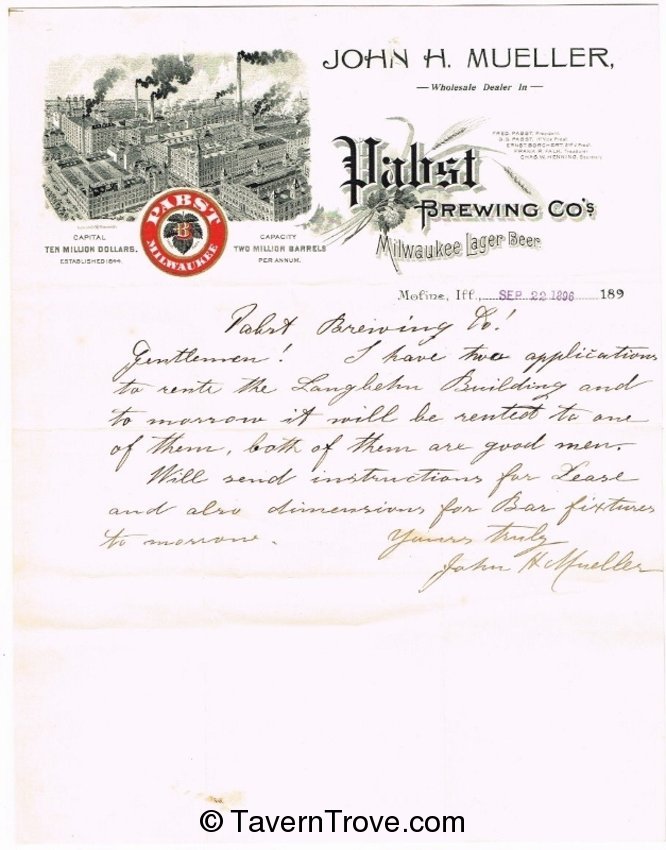 JOHN H. MUELLER,
— Wholesale Dealer In —
FRED. PABST, President.
ERNST BORCHERT,
FRANK R. FALK, Treasurer
CHAS. W. HENNING, Secretary
Pabst
BREWING CO'S
Milwaukee Lager Beer
PABST
B
MILWAUKEE
CAPITAL
TEN MILLION DOLLARS.
ESTABLISHED 1844.
CAPACITY
TWO MILLION BARRELS
PER ANNUM.
Moline, Ill., SEP 22 1896 189
Pabst Brewing Co!
Gentlemen! I have two applications
to rente the Langbehn Building and
to morrow it will be rented to one
of them, both of them are good men.
Will send instructions for Lease
and also dimensions for Bar fixtures
to morrow. Yours truly
John H Mueller
© TavernTrove.com